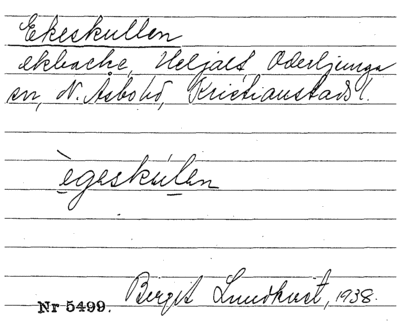 Ekeskullen
ekbacke, Heljalt Oderljunga
sn, N. Åsbo hd, Kristianstads l.
ègeskúlen
Birgit Lundkvist, 1938.
Nr 5499.